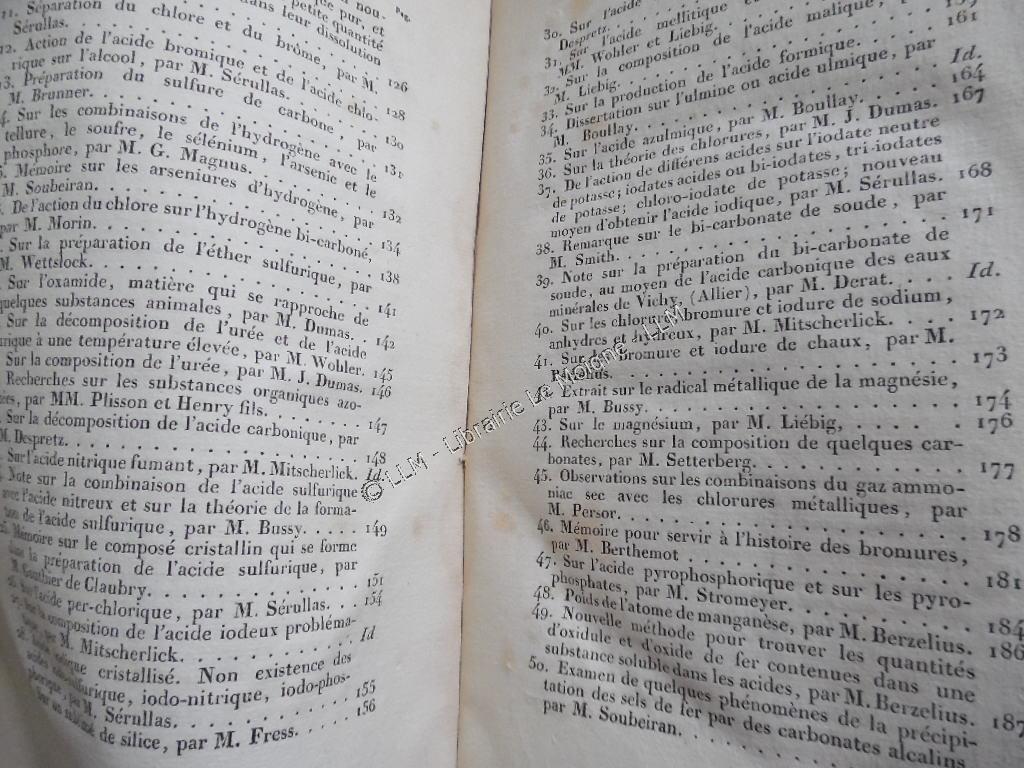 nou-
Pag.
pure pur, et
petite quantité
dans leur dissolution
11. Séparation du chlore et du brôme, par M.
Sérullas. 126
12. Action de l'acide bromique et de l'acide chlo-
rique sur l'alcool, par M. Sérullas. 128
13. Préparation du sulfure de carbone, par
M. Brunner. 130
4. Sur les combinaisons de l'hydrogène avec le
tellure, le soufre, le sélénium, l'arsenic et le
phosphore, par M. G. Magnus. 131
Mémoire sur les arseniures d'hydrogène, par
M. Soubeiran. 132
De l'action du chlore sur l'hydrogène bi-carboné,
par M. Morin. 134
Sur la préparation de l'éther sulfurique, par
M. Wettslock. 138
Sur l'oxamide, matière qui se rapproche de
quelques substances animales, par M. Dumas. 141
Sur la décomposition de l'urée et de l'acide 142
urique à une température élevée, par M. Wohler. 145
Sur la composition de l'urée, par M. J. Dumas. 146
Recherches sur les substances organiques azo-
tées, par MM. Plisson et Henry fils. 147
Sur la décomposition de l'acide carbonique, par
M. Despretz. 148
Sur l'acide nitrique fumant, par M. Mitscherlick. Id.
Note sur la combinaison de l'acide sulfurique
avec l'acide nitreux et sur la théorie de la forma-
tion de l'acide sulfurique, par M. Bussy. 149
Mémoire sur le composé cristallin qui se forme
dans la préparation de l'acide sulfurique, par
M. Gauthier de Claubry. 151
Sur l'acide per-chlorique, par M. Sérullas. 154
Sur la composition de l'acide iodeux probléma-
tique, par M. Mitscherlick. Id
Acide iodique cristallisé. Non existence des
acides iodo-sulfurique, iodo-nitrique, iodo-phos-
phorique, par M. Sérullas. 155
Sur un sublimé de silice, par M. Fress. 156
30. Sur l'acide
Despretz.
31. Sur l'acide mellitique
MM. Wohler et Liebig. 159
32. Sur la composition de l'acide malique, par
M. Liebig. 161
33. Sur la production de l'acide formique.
34. Dissertation sur l'ulmine ou acide ulmique, par Id.
M. Boullay. 164
35. Sur l'acide azulmique, par M. Boullay.
36. Sur la théorie des chlorures, par M. J. Dumas. 167
37. De l'action de différens acides sur l'iodate neutre
de potasse; iodates acides ou bi-iodates, tri-iodates
de potasse; chloro-iodate de potasse; nouveau
moyen d'obtenir l'acide iodique, par M. Sérullas. 168
38. Remarque sur le bi-carbonate de soude, par
M. Smith. 171
39. Note sur la préparation du bi-carbonate de
soude, au moyen de l'acide carbonique des eaux
minérales de Vichy, (Allier), par M. Derat. Id.
40. Sur les chlorure, bromure et iodure de sodium,
anhydres et hydreux, par M. Mitscherlick. 172
41. Sur de bromure et iodure de chaux, par M.
Berzelius. 173
42. Extrait sur le radical métallique de la magnésie,
par M. Bussy. 174
43. Sur le magnésium, par M. Liébig, 176
44. Recherches sur la composition de quelques car-
bonates, par M. Setterberg. 177
45. Observations sur les combinaisons du gaz ammo-
niac sec avec les chlorures métalliques, par
M. Persor. 178
46. Mémoire pour servir à l'histoire des bromures,
par M. Berthemot 181
47. Sur l'acide pyrophosphorique et sur les pyro-
phosphates, par M. Stromeyer. 184
48. Poids de l'atome de manganèse, par M. Berzelius. 186
49. Nouvelle méthode pour trouver les quantités
d'oxidule et d'oxide de fer contenues dans une
substance soluble dans les acides, par M. Berzelius. 187
50. Examen de quelques phénomènes de la précipi-
tation des sels de fer par des carbonates alcalins
par M. Soubeiran.
© LLM - Librairie La Malone - LLM